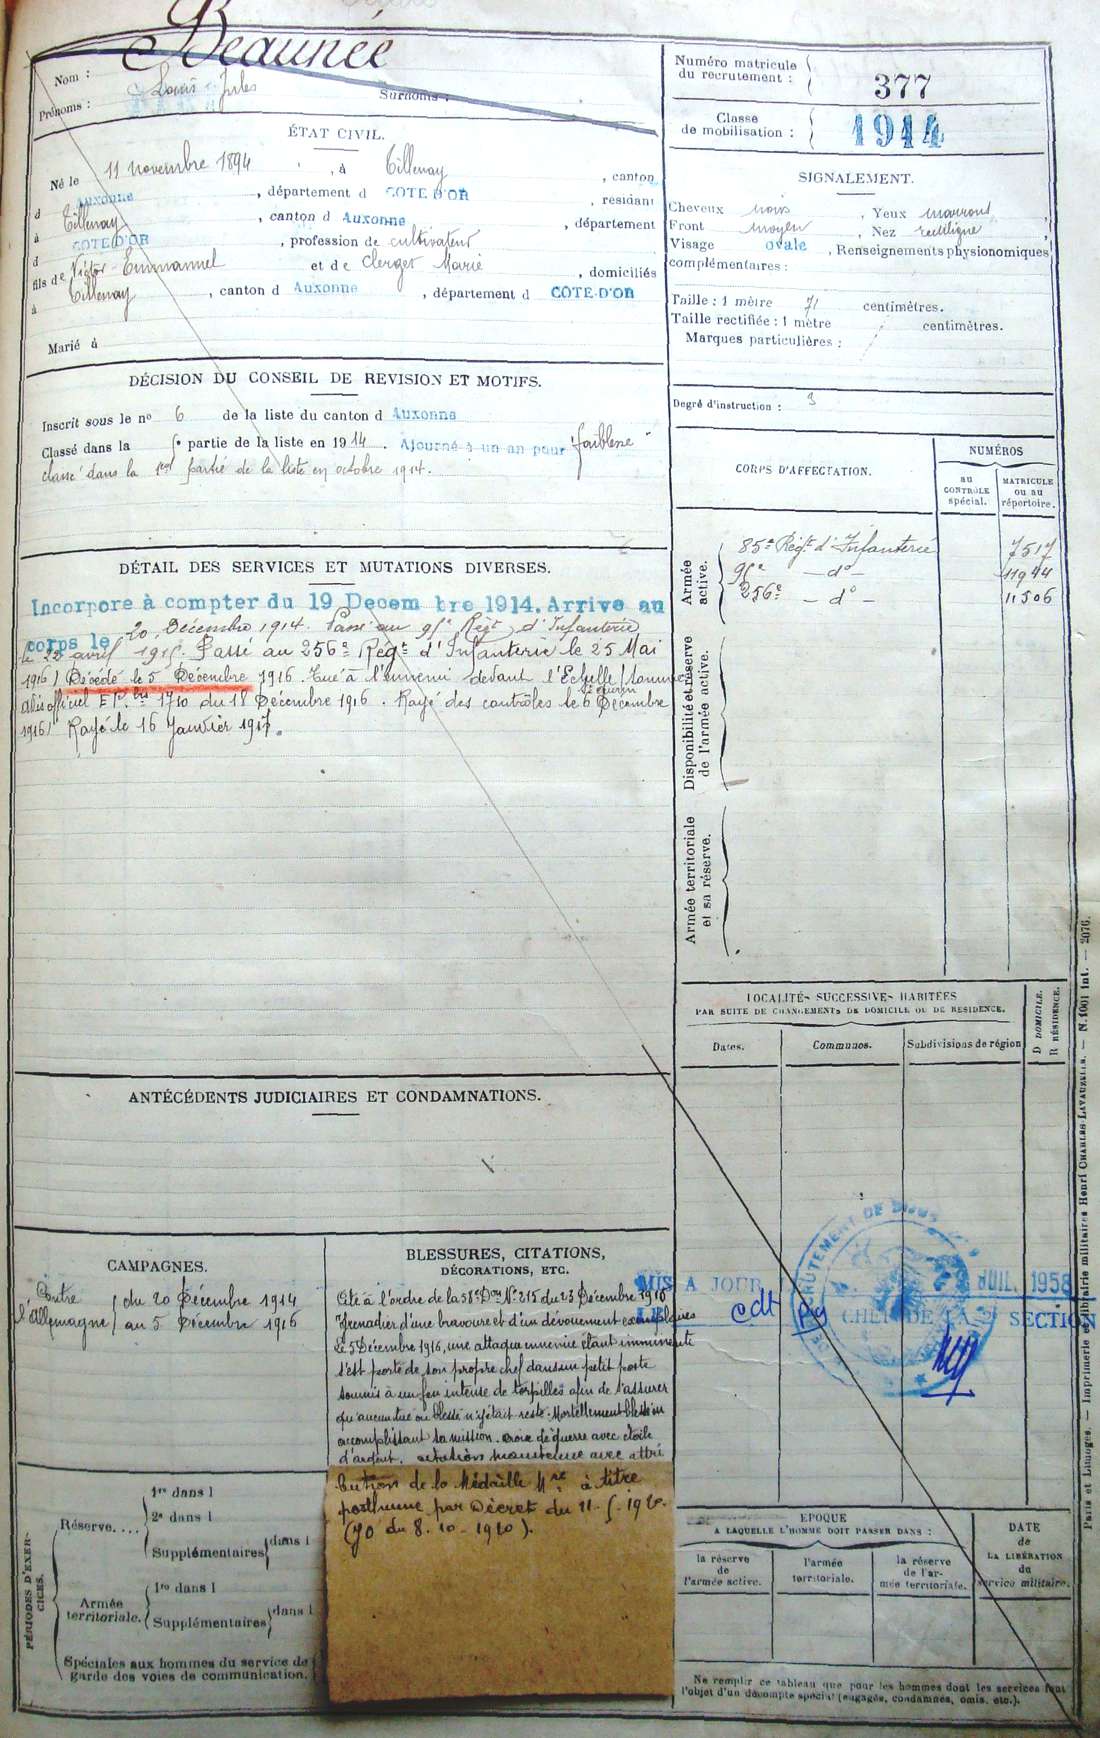 Beaunée
Nom :
Prénoms : Louis Jules
Surnoms :
ÉTAT CIVIL.
Né le 11 novembre 1894, à Tillenay, canton
d AUXONNE, département d COTE D'OR, résidant
à Tillenay, canton d Auxonne, département
d COTE D'OR, profession de cultivateur
fils de Victor-Emmanuel et de Clerget Marie, domiciliés
à Tillenay, canton d Auxonne, département d COTE-D'OR
Marié à
Numéro matricule
du recrutement : 377
Classe
de mobilisation : 1914
SIGNALEMENT.
Cheveux noirs, Yeux marrons,
Front moyen, Nez rectiligne,
Visage ovale, Renseignements physionomiques
complémentaires :
Taille : 1 mètre 71 centimètres.
Taille rectifiée : 1 mètre centimètres.
Marques particulières :
Degré d'instruction : 3
DÉCISION DU CONSEIL DE REVISION ET MOTIFS.
Inscrit sous le no 6 de la liste du canton d Auxonne
Classé dans la 5e partie de la liste en 1914. Ajourné à un an pour "faiblesse"
classé dans la 1ere partie de la liste en octobre 1914.
CORPS D'AFFECTATION.
NUMÉROS
au
CONTRÔLE
spécial.
MATRICULE
ou au
répertoire.
Armée
active.
85e Régt d'Infanterie 7517
95e — do — 11944
256e — do — 11506
Disponibilité et réserve
de l'armée active.
Armée territoriale
et sa réserve.
DÉTAIL DES SERVICES ET MUTATIONS DIVERSES.
Incorporé à compter du 19 Decembre 1914. Arrivé au
corps le 20 Décembre 1914. Passé au 95e Régt d'Infanterie
le 22 avril 1915. Passé au 256e Régt d'Infanterie le 25 Mai
1916) Décédé le 5 Décembre 1916. Tué à l'ennemi devant l'Echelle St Aurin (Somme)
avis officiel du 18 Décembre 1916. Rayé des contrôles le 6 Décembre
1916) Rayé le 16 Janvier 1917.
LOCALITÉS SUCCESSIVES HABITÉES
PAR SUITE DE CHANGEMENTS DE DOMICILE OU DE RESIDENCE.
Dates.
Communes.
Subdivisions de région
D DOMICILE.
R RÉSIDENCE.
ANTÉCÉDENTS JUDICIAIRES ET CONDAMNATIONS.
CAMPAGNES.
Contre
l'Allemagne
du 20 Décembre 1914
au 5 Décembre 1916
BLESSURES, CITATIONS,
DÉCORATIONS, ETC.
Cité à l'ordre de la 58e Don No 215 du 23 Décembre 1916
Grenadier d'une bravoure et d'un dévouement exemplaires
Le 5 Décembre 1916, une attaque ennemie étant imminente
s'est porté de son propre chef dans un petit poste
soumis à un feu intense de torpilles afin de s'assurer
qu'aucun tué ou blessé n'y était resté. Mortellement blessé en
accomplissant sa mission. Croix de guerre avec étoile
d'argent. citation maintenue avec attri
bution de la Médaille Mre à titre
posthume par Décret du 11.5.1920.
(JO du 8.10-1920).
MIS A JOUR
LE
JUIL. 1958
cdt
CHEF DE LA 2e SECTION
RECRUTEMENT DE DIJON
PÉRIODES D'EXER-
CICES.
Réserve....
1re dans l
2e dans l
Supplémentaires dans l
Armée
territoriale.
1re dans l
Supplémentaires dans l
Spéciales aux hommes du service de
garde des voies de communication.
EPOQUE
A LAQUELLE L'HOMME DOIT PASSER DANS :
la réserve
de
l'armée active.
l'armée
territoriale.
la réserve
de l'ar-
mée territoriale.
DATE
de
LA LIBÉRATION
du
service militaire.
Ne remplir ce tableau que pour les hommes dont les services font
l'objet d'un décompte spécial (engagés, condamnés, omis, etc.).
Paris et Limoges. — Imprimerie et librairie militaires Henri CHARLES-LAVAUZELLE. — N. 1001 int. — 2076.